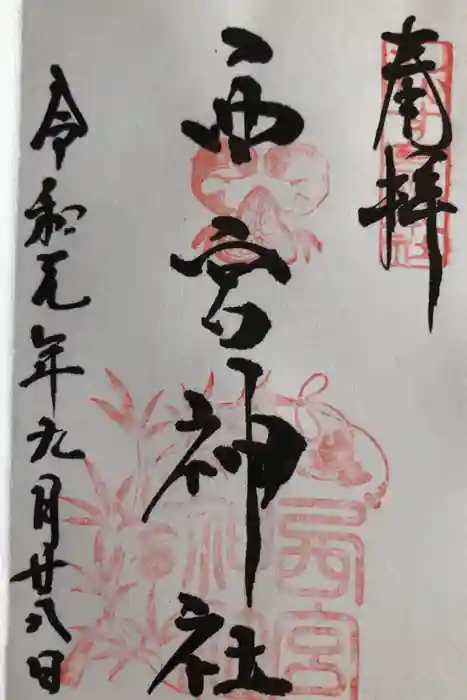 奉拝
西宮神社
令和元年九月廿八日
西宮
神社